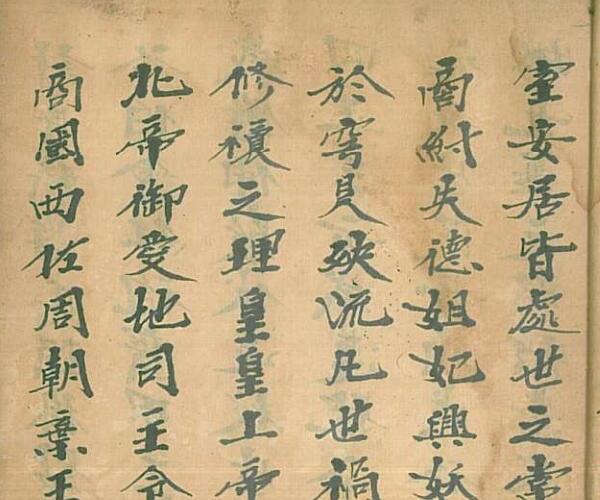 室安居皆處世之常
商紂失德妲妃興妖
於寃見殃流凡世禍
修禳之理皇皇上帝
北帝御受地司主令
商國西佐周朝棄王